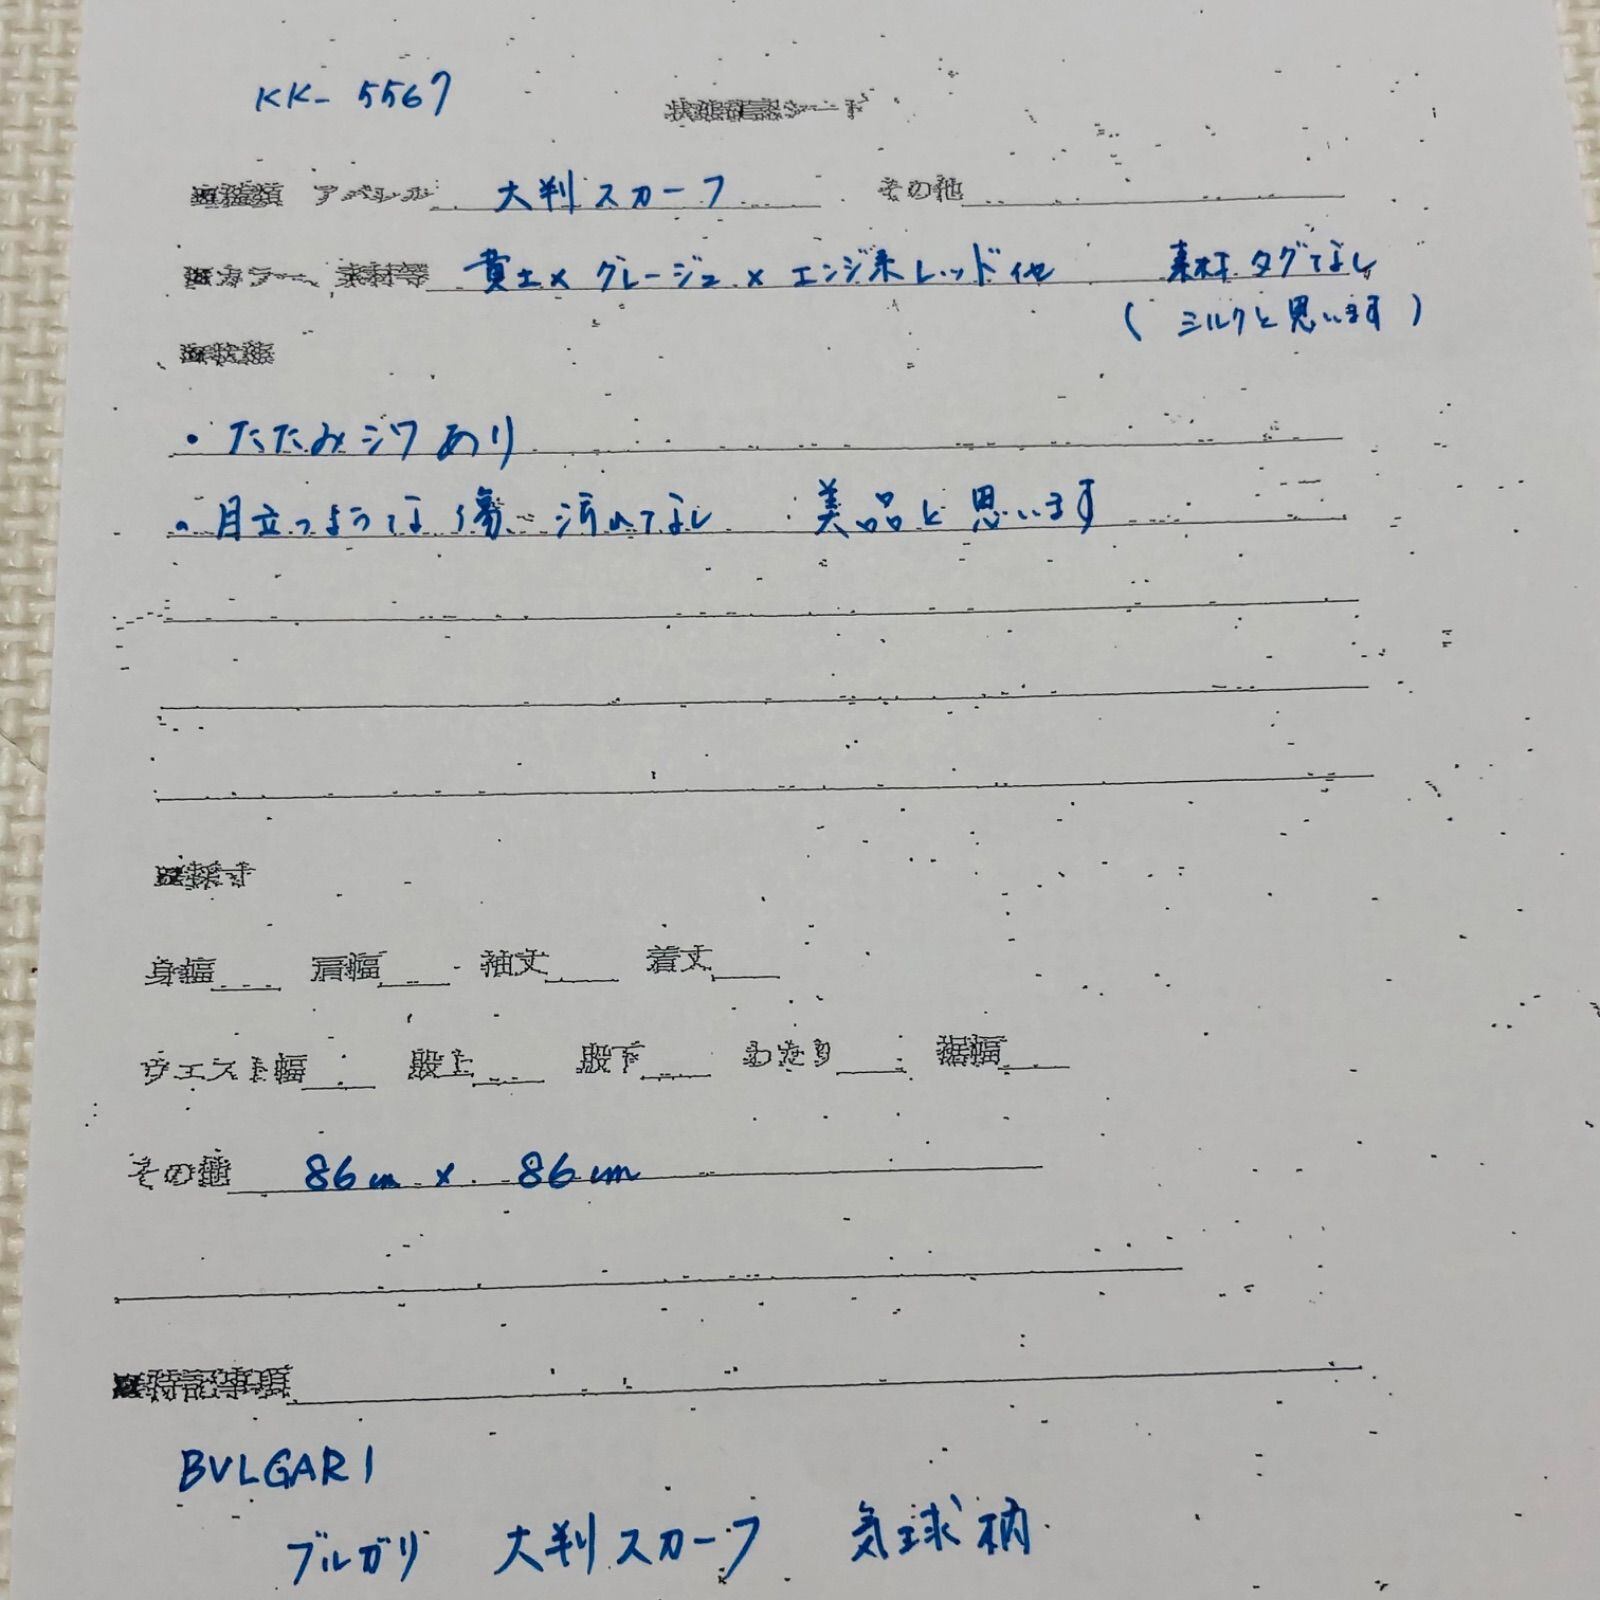 KK-5567
状態確認シート
■種類 アパレル 大判スカーフ その他
■カラー、素材等 黄土×グレージュ×エンジ系レッド他 素材タグなし
(シルクと思います)
■状態
・たたみジワあり
・目立つような傷、汚れなし 美品と思います
■採寸
身幅 肩幅 袖丈 着丈
ウエスト幅 股上 股下 わたり 裾幅
その他 86cm × 86cm
■特記事項
BVLGARI
ブルガリ 大判スカーフ 気球柄